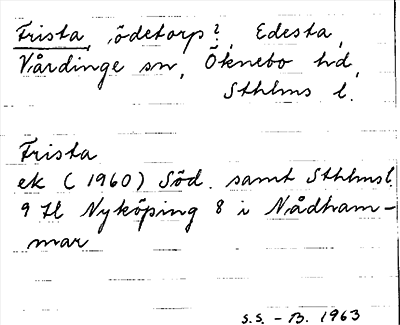 Frista, ödetorp?, Edesta,
Vårdinge sn, Öknebo hd,
Sthlms l.
Frista
ek (1960) Söd. samt Sthlmsl.
9 Hl Nyköping 8 i Nådham-
mar
S.S. - B. 1963